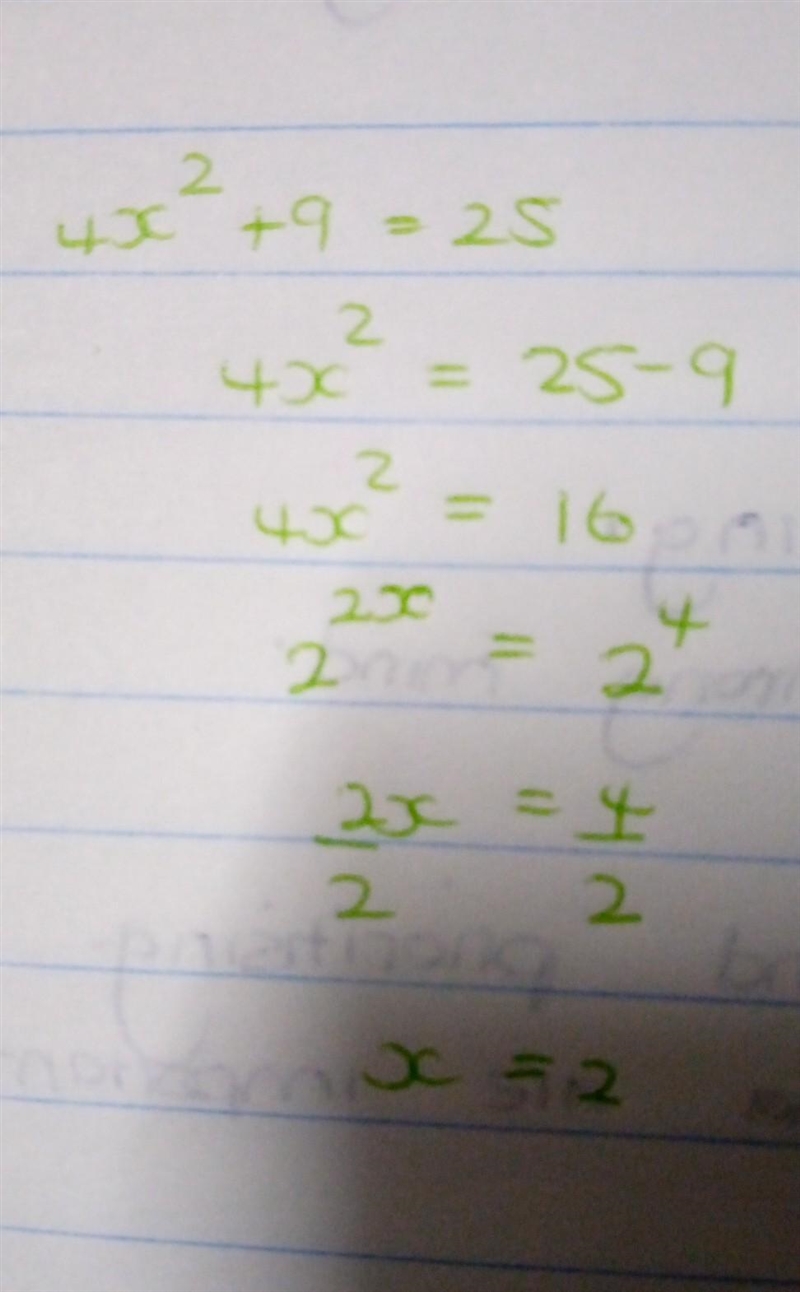 4x² + 9 = 25
4x² = 25 - 9
4x² = 16
2²ˣ = 2⁴
2x/2 = 4/2
x = 2